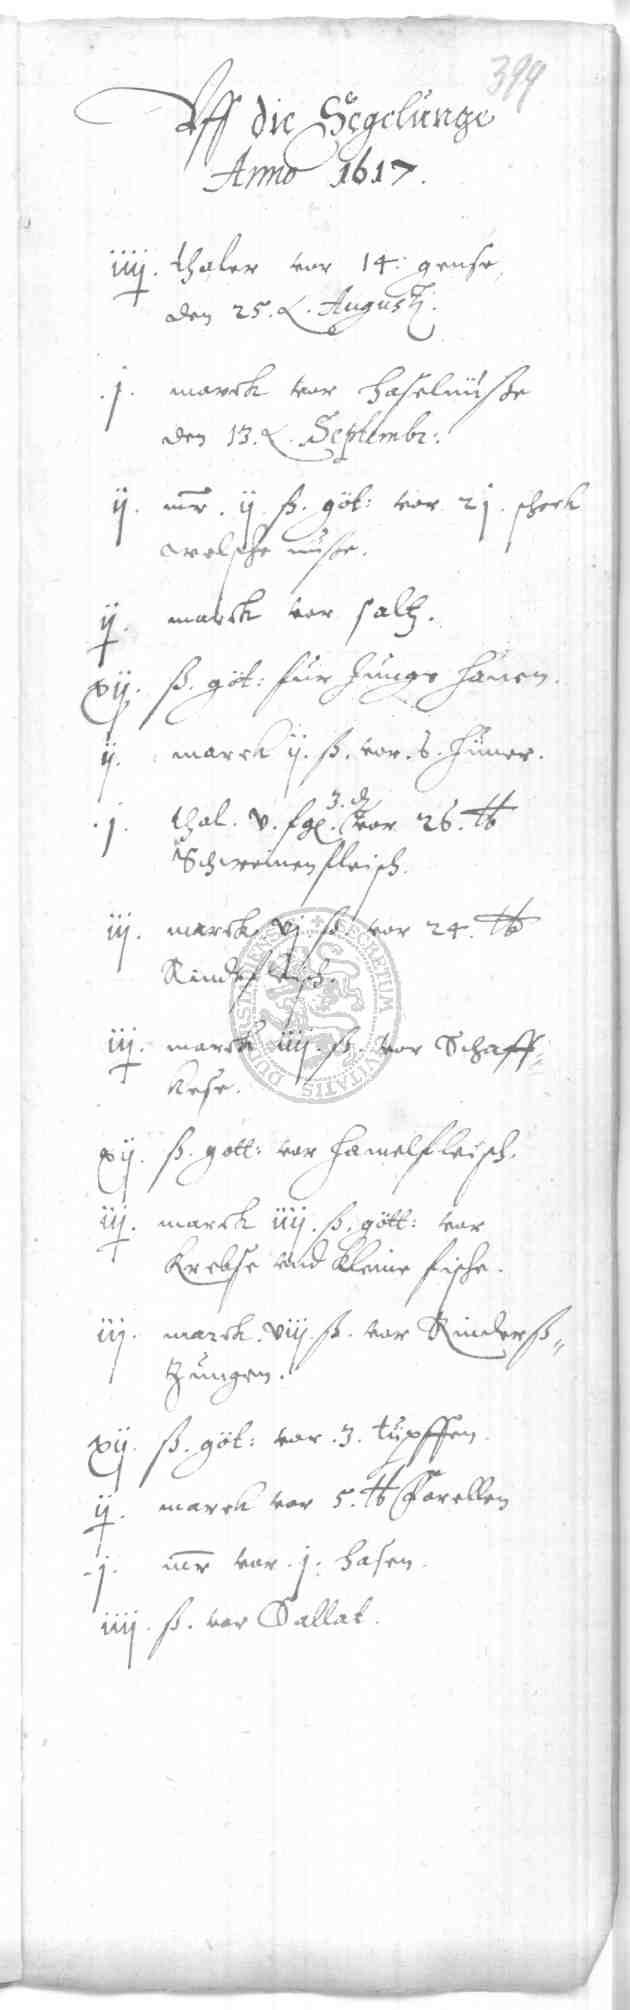 399
Vff die Segelunge
Anno 1617.
iiij. thaler vor 14: gense,
den 25. Augustj.
.j. marck vor haselnüsse
den 13. Septembr:
ij. mr. ij. ß. göt: vor 2j. schock
welsche nüsse.
ij. marck vor saltz.
xij. ß. göt: für junge hanen.
ij. marck ij. ß. vor. 6. hüner.
.j. thal. v. sgl. 3. d vor 26. ℔
Schweinenfleisch.
iij. marck vj. ß. vor 24. ℔
Rindtfleisch.
iij. marck iiij. ß. vor Schaff-
kese.
xij. ß. gott: vor hamelfleisch.
iij. marck iiij. ß. gött: vor
Krebse vnd kleine fische.
iij. marck. viij. ß. vor Rinderß-
zungen.
xij. ß. göt: vor .3. tüpffen.
ij. marck vor 5. ℔ Forellen
.j. mr vor .j. hasen.
iiij. ß. vor Sallat.
SECRETUM CIVITATIS DUDERSTADENSIS